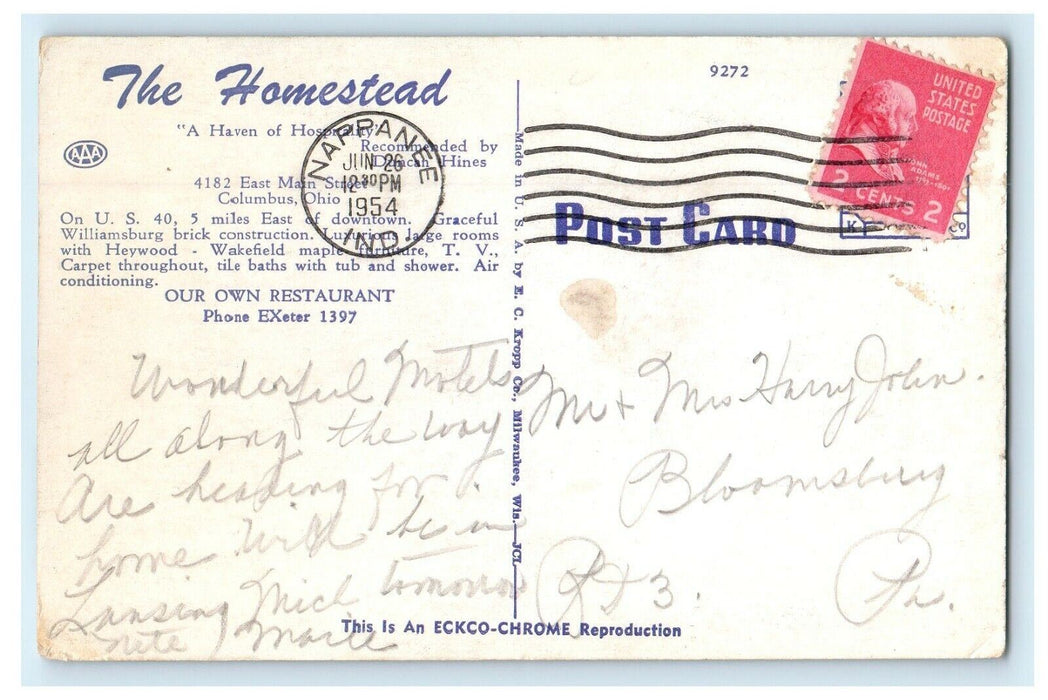 The Homestead
"A Haven of Hospitality"
Recommended by
Duncan Hines
AAA
4182 East Main Street
Columbus, Ohio
On U. S. 40, 5 miles East of downtown. Graceful
Williamsburg brick construction. Luxurious large rooms
with Heywood - Wakefield maple furniture, T. V.,
Carpet throughout, tile baths with tub and shower. Air
conditioning.
OUR OWN RESTAURANT
Phone EXeter 1397
NAPPANEE
JUN 26
12 30 PM
1954
IND.
Wonderful Motels
all along the way
Are heading for
home Will be in
Lansing Mich tomorrow
nite Marie
Made in U. S. A. by E. C. Kropp Co., Milwaukee, Wis. JCL
9272
UNITED
STATES
POSTAGE
JOHN
ADAMS
2 CENTS 2
POST CARD
Mr + Mrs Harry John.
Bloomsburg
R D 3. Pa.
This Is An ECKCO-CHROME Reproduction